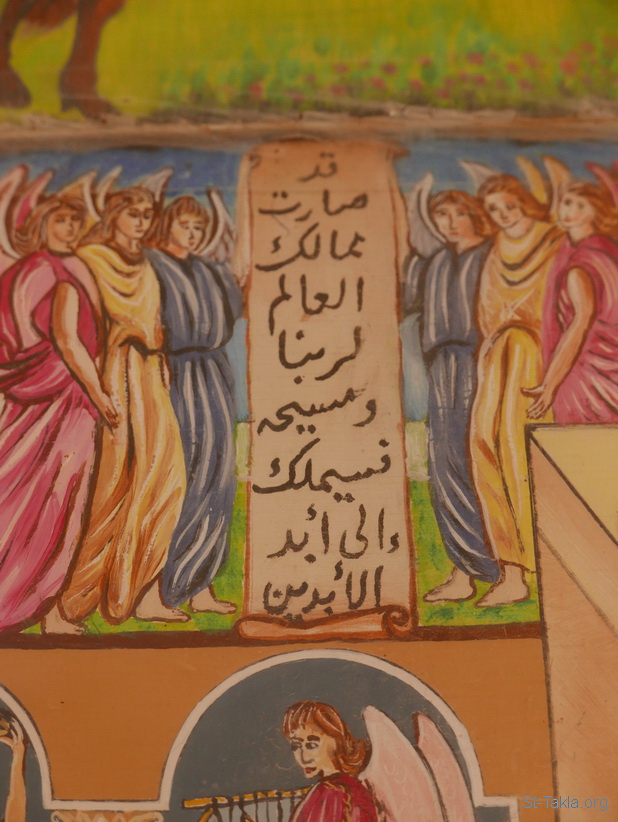 قد
صارت
ممالك
العالم
لربنا
ومسيحه
فسيملك
إلى أبد
الأبدين
St-Takla.org